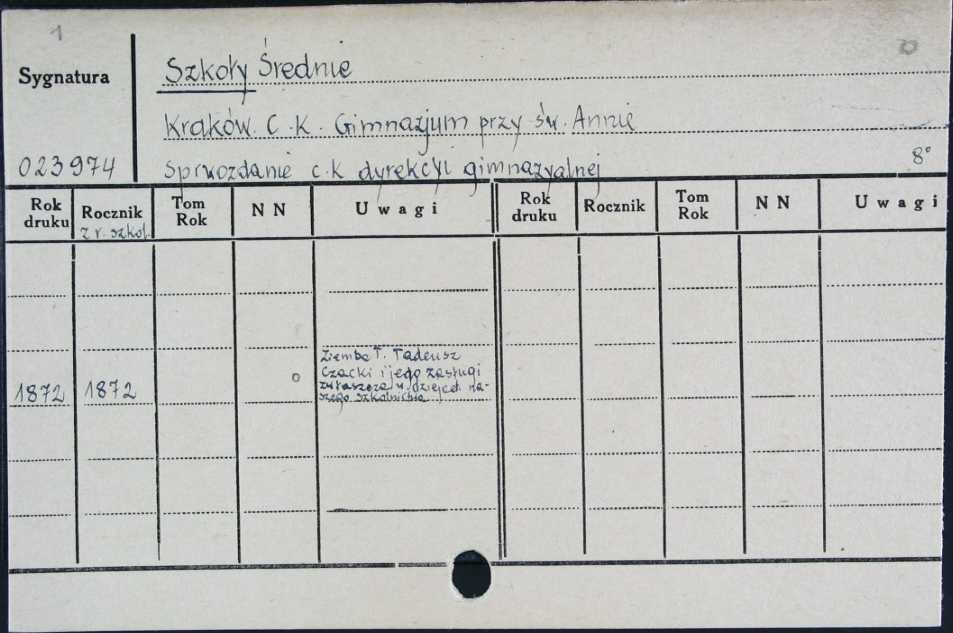 1
Sygnatura
023974
Szkoły Średnie
Kraków. C.K. Gimnazjum przy św. Annie
Sprwozdanie c.k dyrekcyi gimnazyalnej
8°
Rok druku Rocznik z r. szkol. Tom Rok N N Uwagi Rok druku Rocznik Tom Rok N N Uwagi
1872 1872
Ziemba T. Tadeusz
Czacki i jego zasługi
zwłaszcza w dziejach na-
szego szkolnictwa